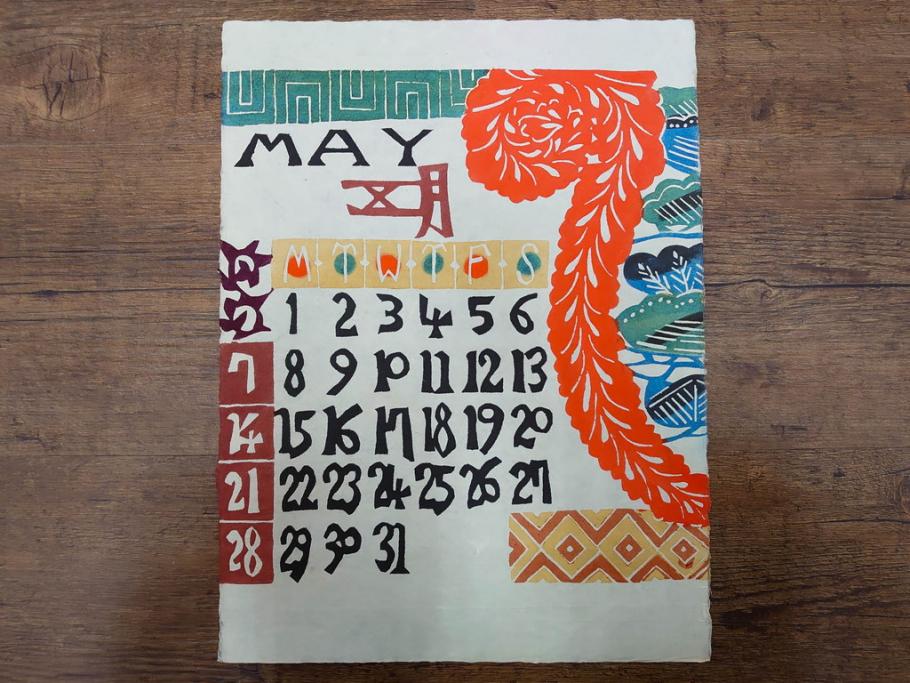 MAY
五月
M T W T F S
1 2 3 4 5 6
7 8 9 10 11 12 13
14 15 16 17 18 19 20
21 22 23 24 25 26 27
28 29 30 31